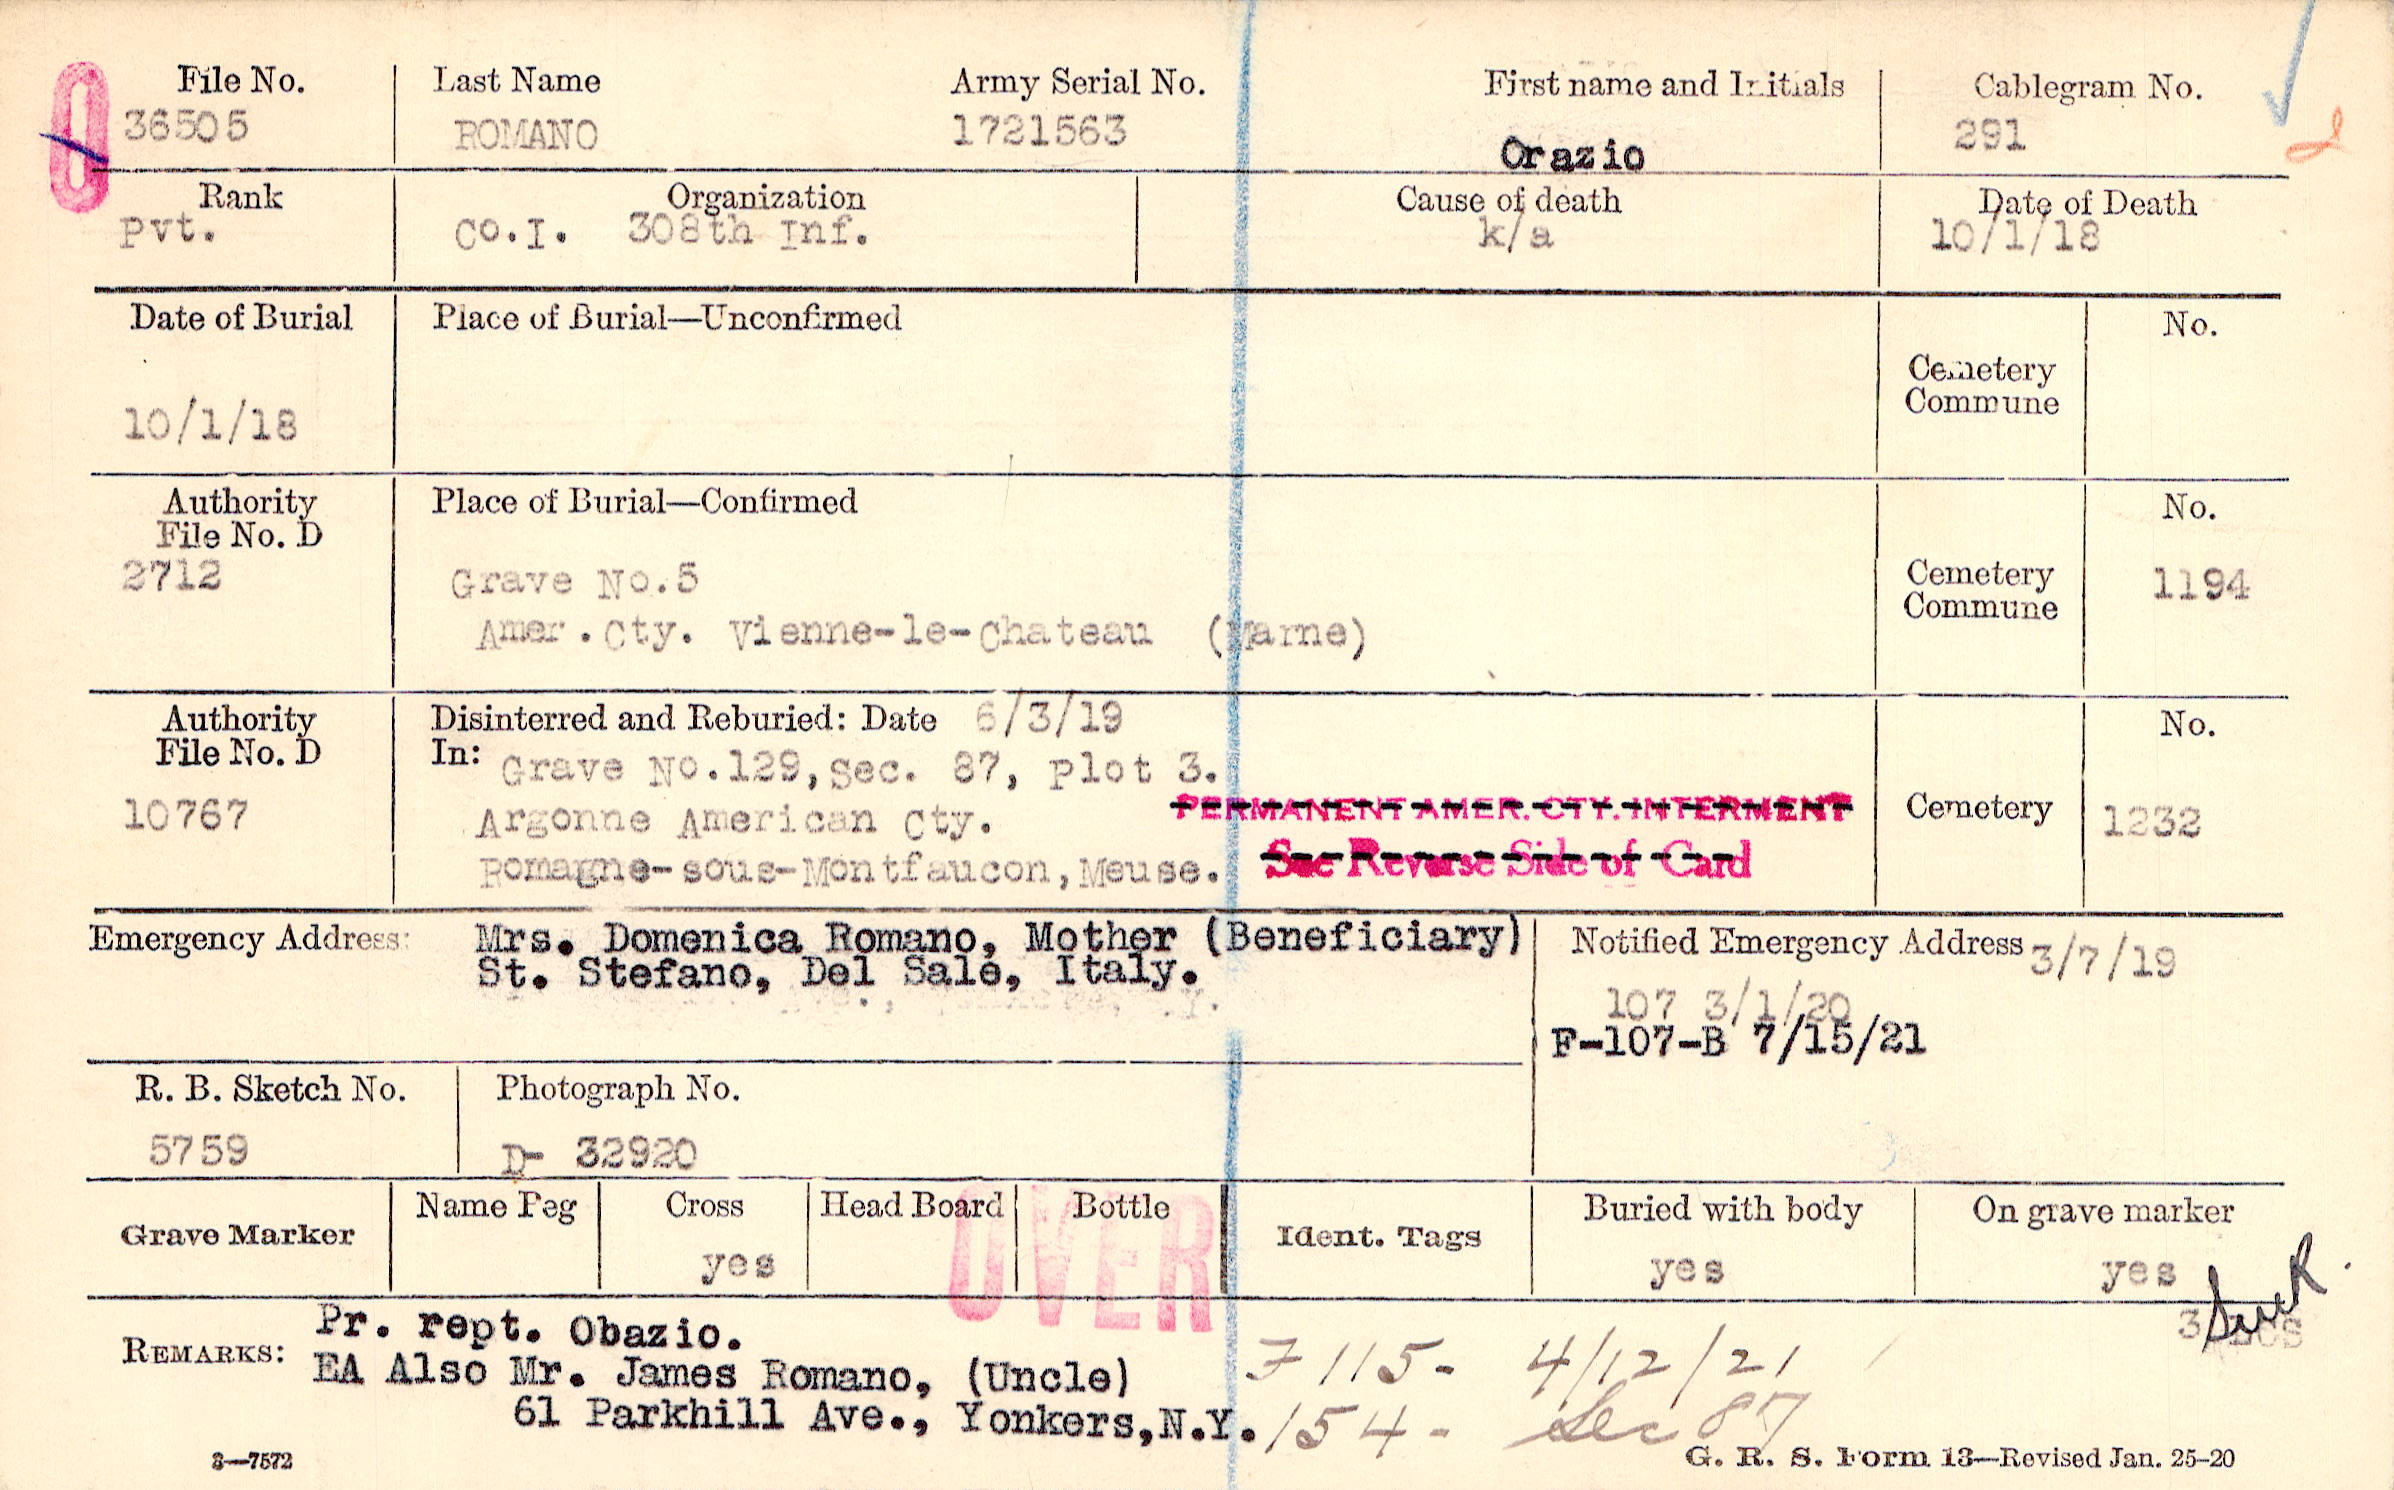 File No. Last Name Army Serial No. First name and Initials Cablegram No.
36505 ROMANO 1721563 Orazio 291
Rank Organization Cause of death Date of Death
Pvt. Co.I. 308th Inf. k/a 10/1/18
Date of Burial Place of Burial—Unconfirmed No.
Cemetery
Commune
10/1/18
Authority Place of Burial—Confirmed No.
File No. D
2712 Grave No.5 Cemetery 1194
Commune
Amer.Cty. Vienne-le-Chateau (Marne)
Authority Disinterred and Reburied: Date 6/3/19 No.
File No. D In: Grave No.129,Sec. 87, Plot 3.
10767 Argonne American Cty. PERMANENT AMER. CTY. INTERMENT Cemetery 1232
Romagne-sous-Montfaucon,Meuse. See Reverse Side of Card
Emergency Address: Mrs. Domenica Romano, Mother (Beneficiary) Notified Emergency Address 3/7/19
St. Stefano, Del Sale, Italy.
107 3/1/20
F-107-B 7/15/21
R. B. Sketch No. Photograph No.
5759 D- 32920
Grave Marker Name Peg Cross Head Board Bottle Ident. Tags Buried with body On grave marker
yes yes yes
OVER
REMARKS: Pr. rept. Obazio.
EA Also Mr. James Romano, (Uncle) F 115- 4/12/21
61 Parkhill Ave., Yonkers,N.Y. 154- Sec 87
3—7572 G. R. S. Form 13—Revised Jan. 25-20